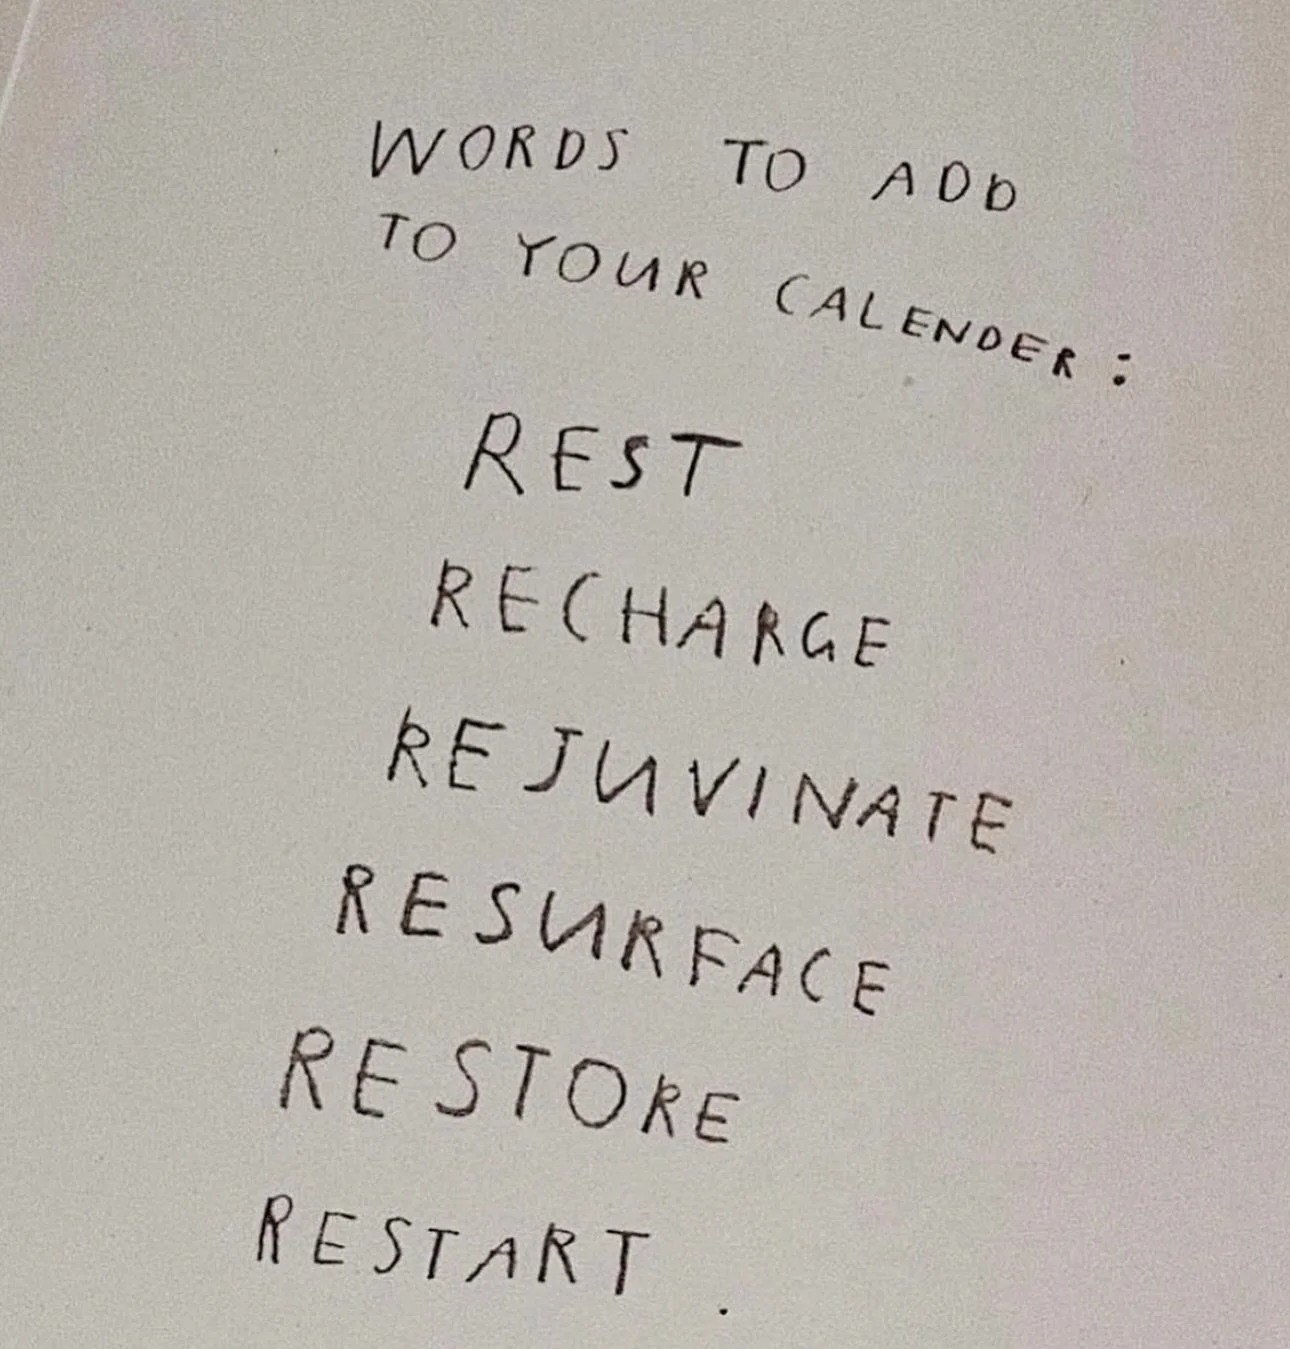 WORDS TO ADD
TO YOUR CALENDER:
REST
RECHARGE
REJUVINATE
RESURFACE
RESTORE
RESTART.